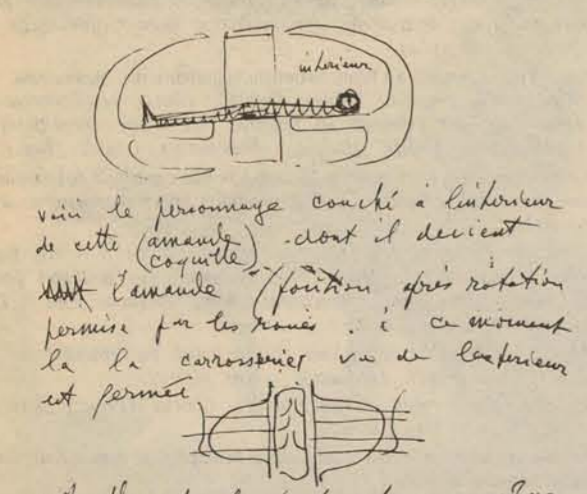 interieur
voici le personnage couché à l'interieur
de cette (amande coquille) - dont il devient
l'amande (position après rotation
permise par les roues : à ce moment
la la carrosserie vue de l'exterieur
est fermée